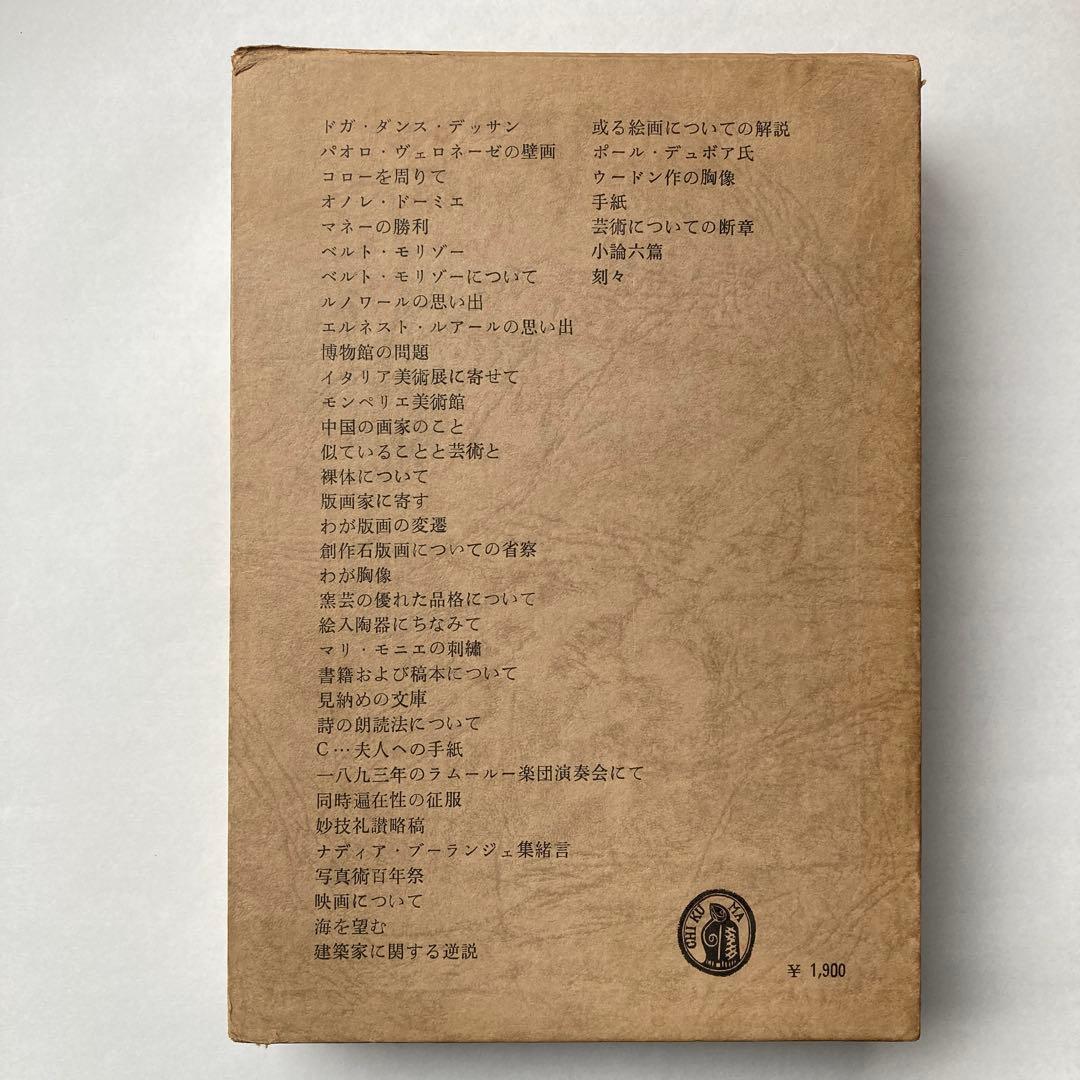 ドガ・ダンス・デッサン
パオロ・ヴェロネーゼの壁画
コローを周りて
オノレ・ドーミエ
マネーの勝利
ベルト・モリゾー
ベルト・モリゾーについて
ルノワールの思い出
エルネスト・ルアールの思い出
博物館の問題
イタリア美術展に寄せて
モンペリエ美術館
中国の画家のこと
似ていることと芸術と
裸体について
版画家に寄す
わが版画の変遷
創作石版画についての省察
わが胸像
窯芸の優れた品格について
絵入陶器にちなみて
マリ・モニエの刺繡
書籍および稿本について
見納めの文庫
詩の朗読法について
C…夫人への手紙
一八九三年のラムールー楽団演奏会にて
同時遍在性の征服
妙技礼讃略稿
ナディア・ブーランジェ集緒言
写真術百年祭
映画について
海を望む
建築家に関する逆説
或る絵画についての解説
ポール・デュボア氏
ウードン作の胸像
手紙
芸術についての断章
小論六篇
刻々
CHIKUMA
¥ 1,900